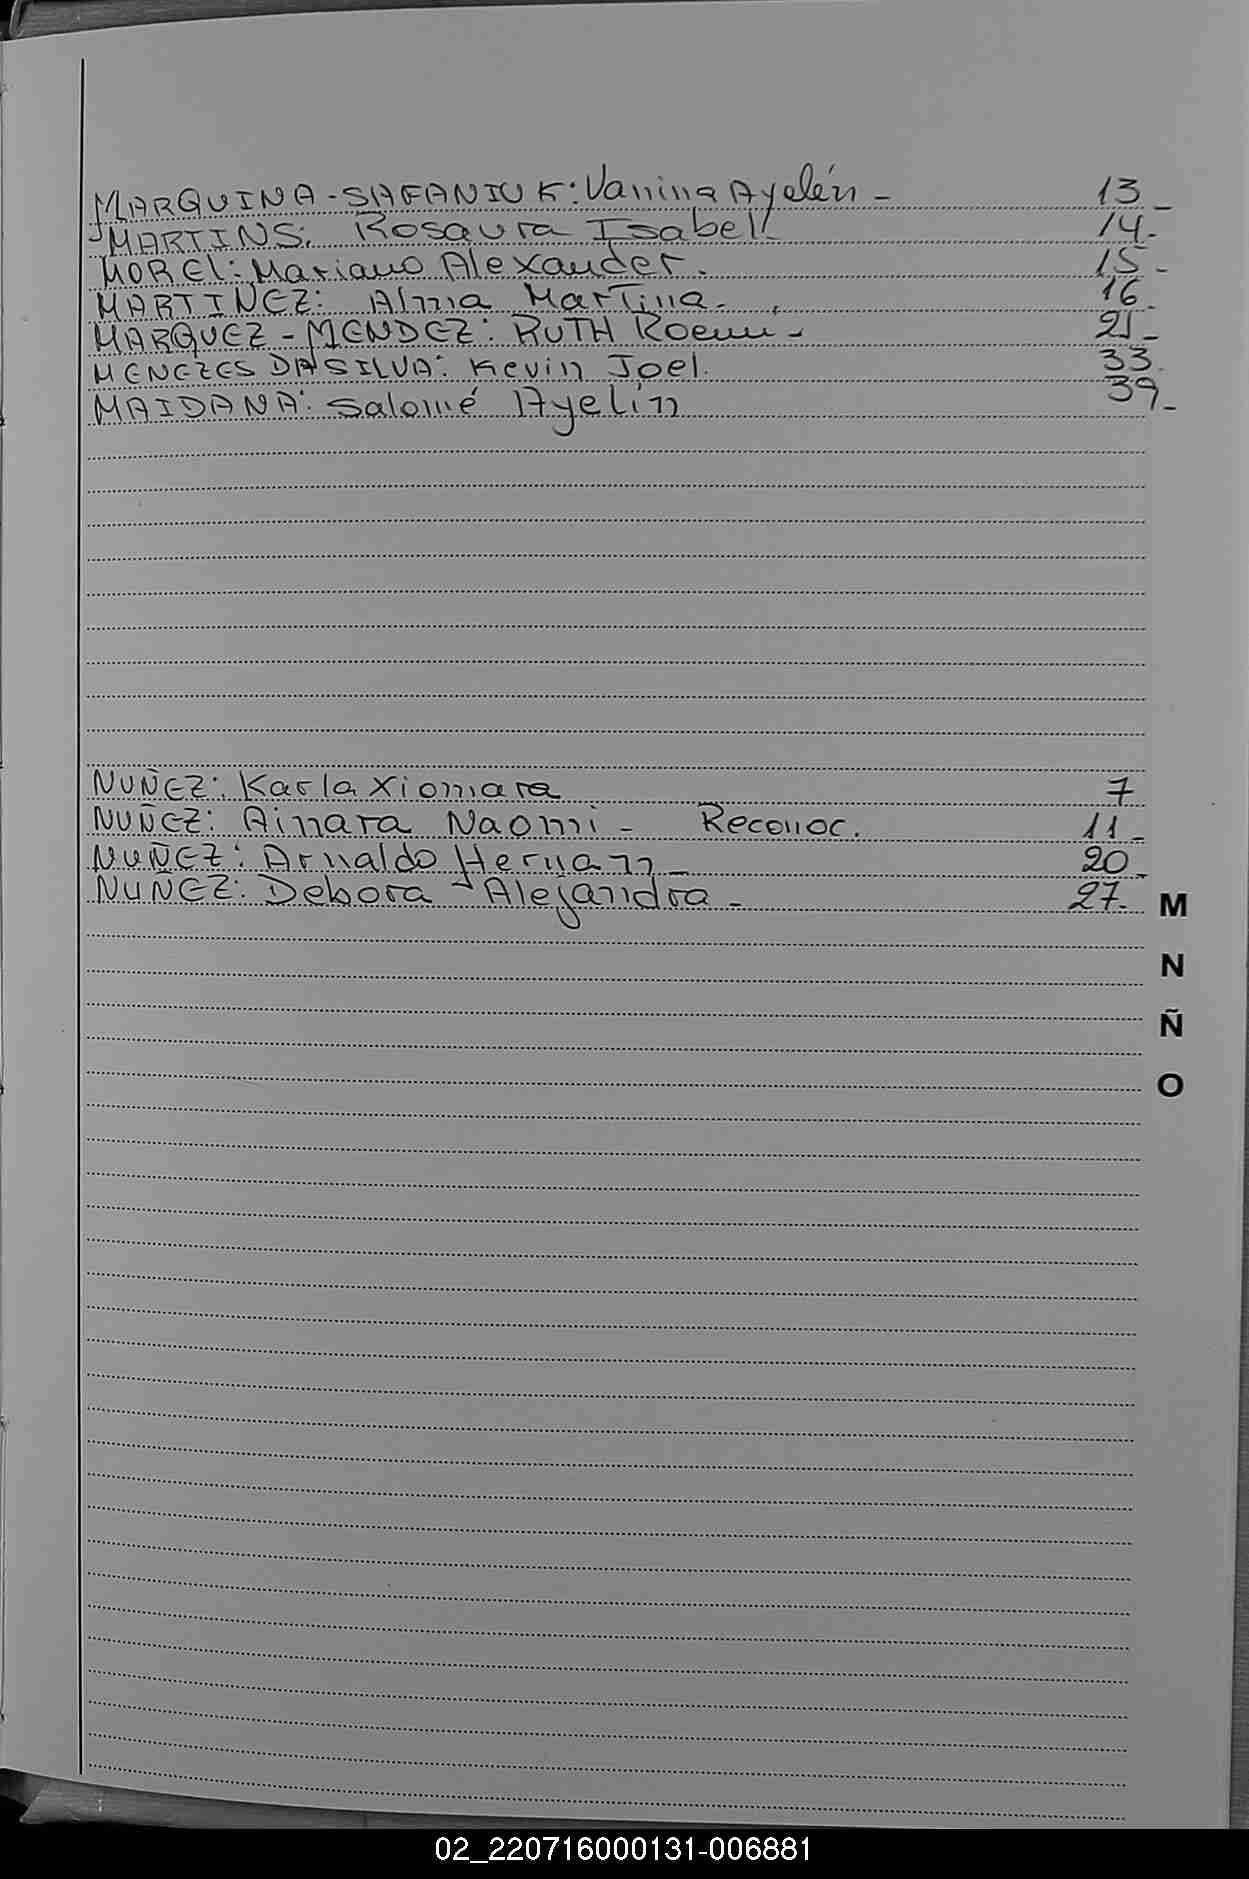 MARQUINA-SAFANIUK: Vanina Ayelén - 13_
MARTINS: Rosaura Isabel. 14-
MOREL: Mariano Alexander. 15-
MARTINEZ: Alma Martina. 16
MARQUEZ-MENDEZ: RUTH Roemi - 21_
MENEZES DASILVA: Kevin Joel. 33.
MAIDANA: Salomé Ayelín 39_
NUÑEZ: Karla Xiomara 7
NUÑEZ: Ainara Naomi - Reconoc. 11_
NUÑEZ: Arnaldo Hernan_ 20_
NUÑEZ: Debora Alejandra - 27-
M
N
Ñ
O
02_220716000131-006881